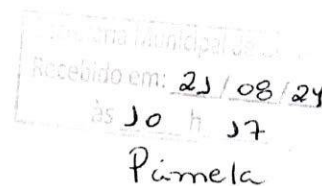 Municipal de
Recebido em: 21 / 08 / 24
às 10 h 17
Pâmela